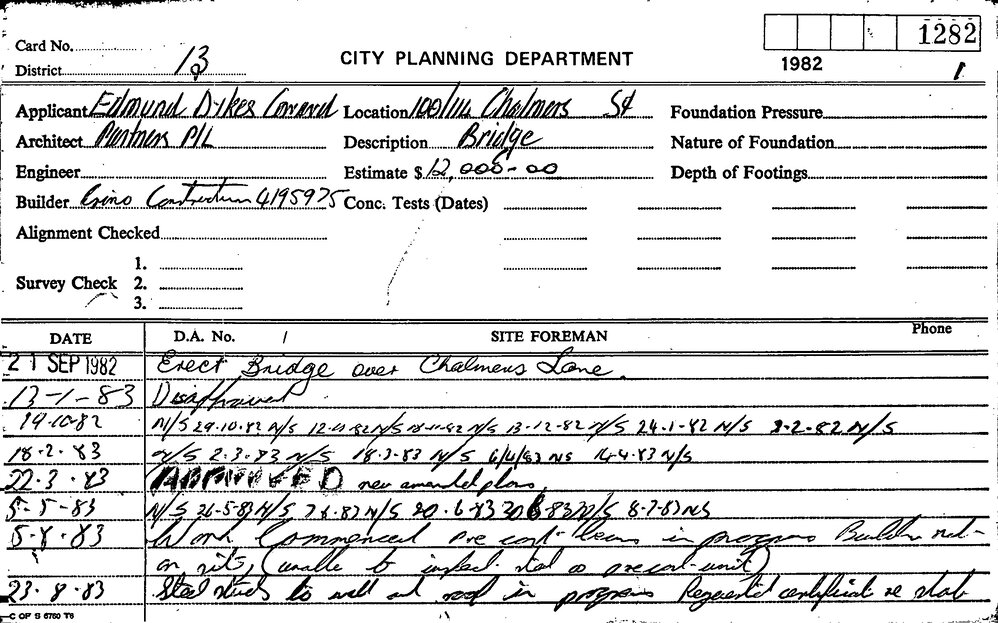 Card No. 1282
District 13 CITY PLANNING DEPARTMENT 1982 1
Applicant Edmund Dykes Location 100/114 Chalmers St Foundation Pressure
Architect Partners P/L Description Bridge Nature of Foundation
Engineer Estimate $ 12,000-00 Depth of Footings
Builder Construction 4195975 Conc. Tests (Dates)
Alignment Checked
1.
Survey Check 2.
3.
DATE D.A. No. / SITE FOREMAN Phone
21 SEP 1982 Erect Bridge over Chalmers Lane.
13-1-83 Disapproved
19-10-82 N/S 29-10-82 N/S 12-11-82 N/S N/S 13-12-82 N/S 24-1-82 N/S 2-2-82 N/S
18-2-83 N/S 2-3-83 N/S 18-3-83 N/S 6/4/83 NS 14-4-83 N/S
22-3-83 APPROVED new amended plans
5-5-83 N/S 26-5-83 N/S 7-6-83 N/S 20-6-83 N/S 8-7-83 NS
5-8-83 Work Commenced Pre cast beams in progress Builder not
on site, (unable to inspect slab as precast unit)
23-8-83 Steel studs to wall and roof in progress Requested certificate re slab
C OF S 6760 T6